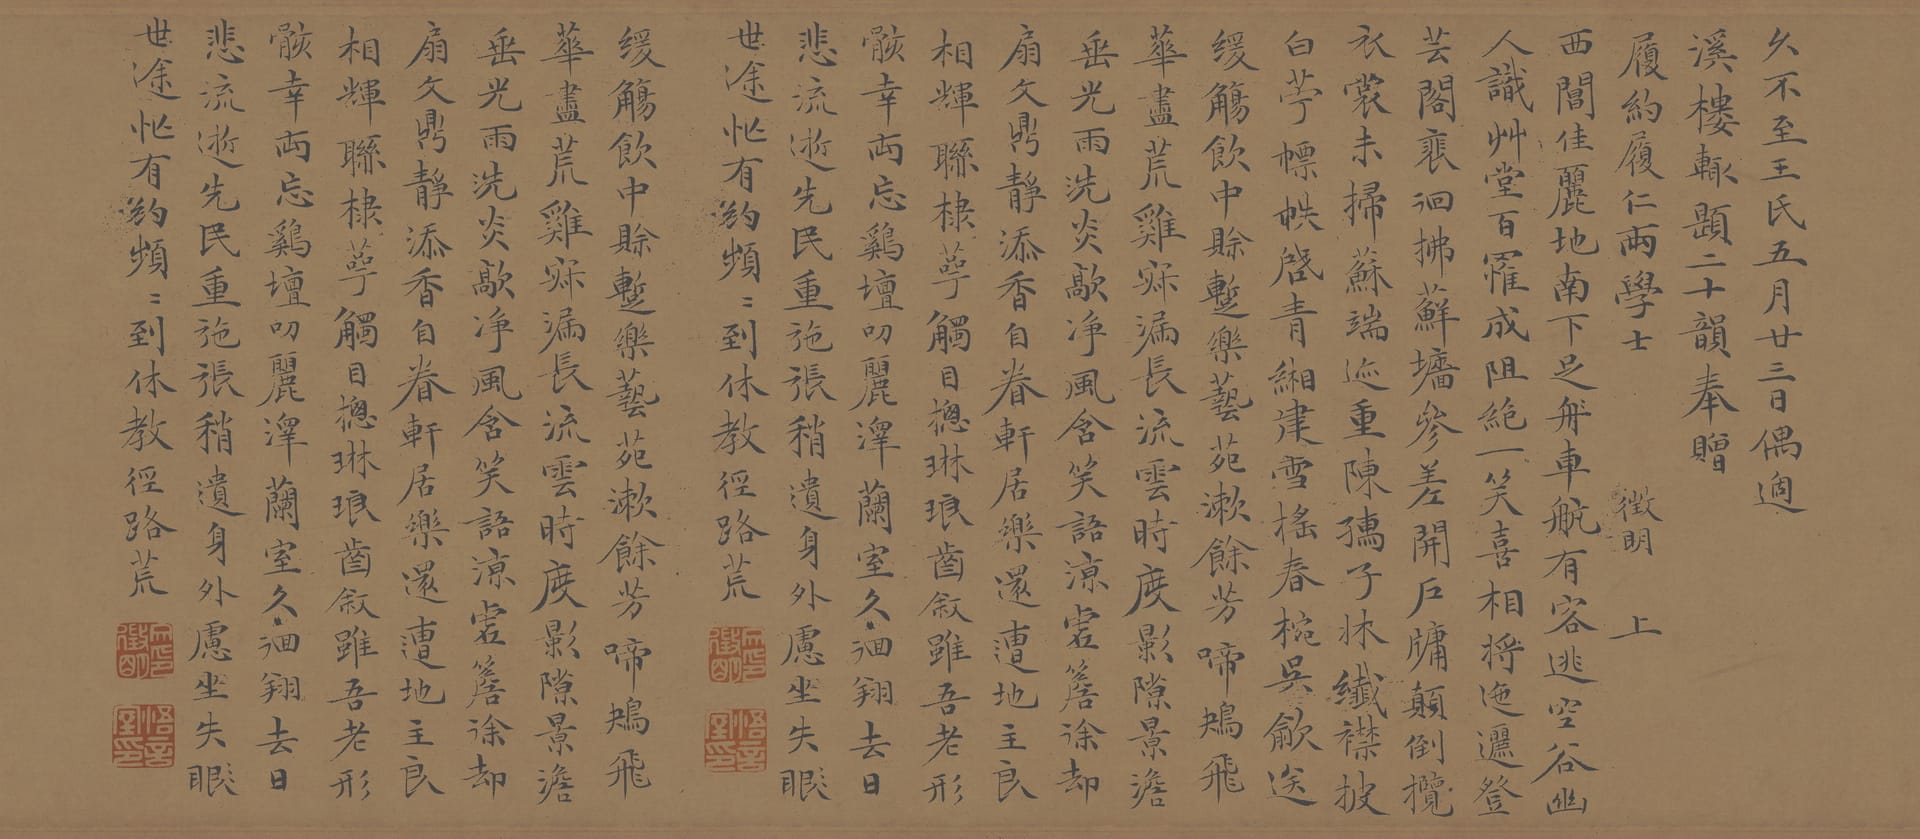 久不至王氏五月廿三日偶過
溪樓輙題二十韻奉贈
履約履仁兩學士 徵明 上
西閶佳麗地南下足舟車航有容逃空谷幽
人識艸堂百罹成阻絕一笑喜相將迤邐登
芸閣裵洄拂蘚墻參差開戶牖顛倒攬
衣裳未掃蘇端迹重陳孺子牀纖襟披
白苧幖帙啓青緗建雪搖春椀吳歈送
緩觴飲中賒蹔樂藝苑漱餘芳啼鴂飛
華盡荒雞寐漏長流雲時度影隙景澹
垂光雨洗炎歊净風含笑語涼虛簷徐却
扇文鼎靜添香自眷軒居樂還遭地主良
相輝聯棣萼觸目摠琳琅齒敘雖吾老形
骸幸兩忘鷄壇叨麗澤蘭室久洄翔去日
悲流逝先民重施張稍遺身外慮坐失眼
世途忙有約頻〻到休教徑路荒
緩觴飲中賒蹔樂藝苑漱餘芳啼鴂飛
華盡荒雞寐漏長流雲時度影隙景澹
垂光雨洗炎歊净風含笑語涼虛簷徐却
扇文鼎靜添香自眷軒居樂還遭地主良
相輝聯棣萼觸目摠琳琅齒敘雖吾老形
骸幸兩忘鷄壇叨麗澤蘭室久洄翔去日
悲流逝先民重施張稍遺身外慮坐失眼
世途忙有約頻〻到休教徑路荒